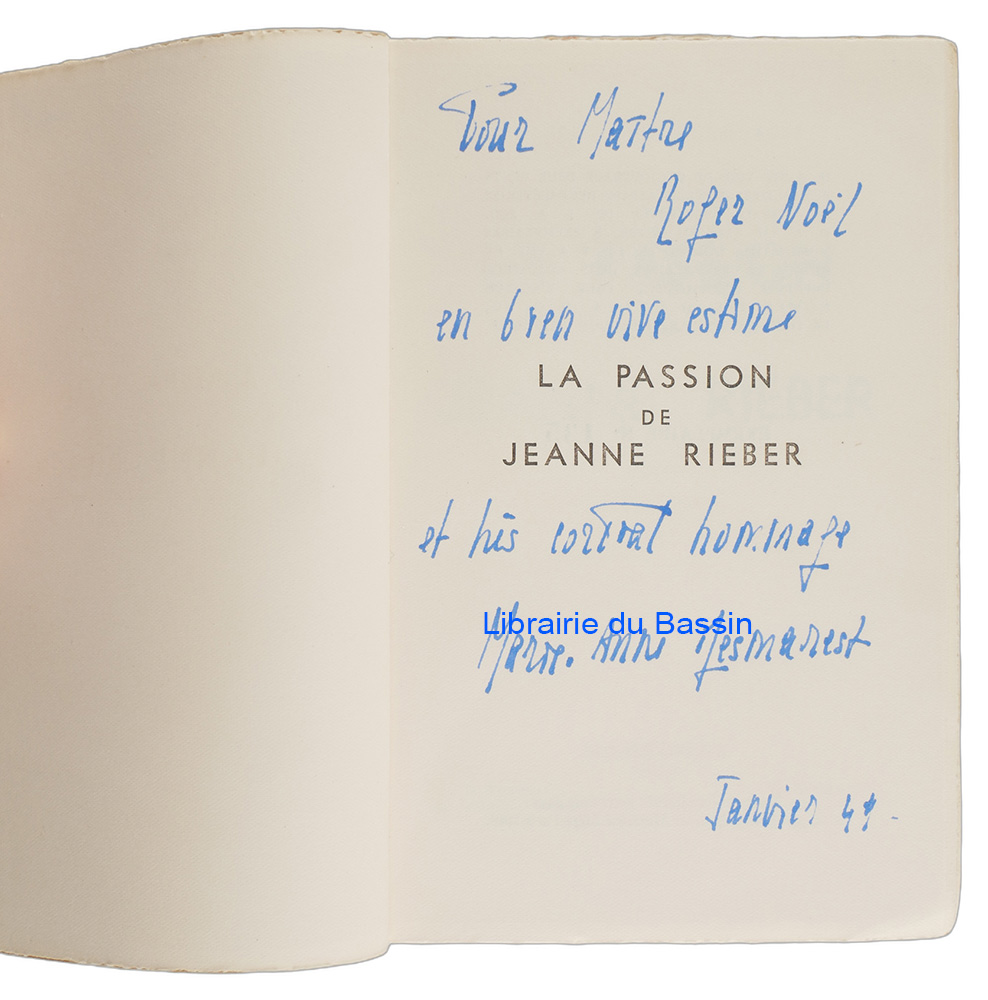 Pour Maître
Roger Noël
en bien vive estime
LA PASSION
DE
JEANNE RIEBER
et très cordial hommage
Librairie du Bassin
Marie-Anne Desmarest
Janvier 49.